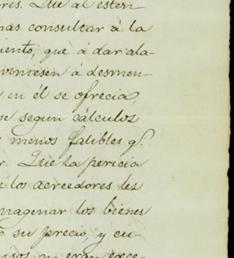 res. Que al esteri-
mas consultar à la
iento, que à dar ala
viniesen à desmen-
en él se ofrecia,
se segun cálculos
menos falibles q.
Que la pericia
los acreedores les
magenar los bienes
su precio, y cu-